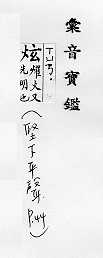 彙音寶鑑
ㄒㄩㄢˊ
炫耀火又
光明也
(堅下平聲. P.44)